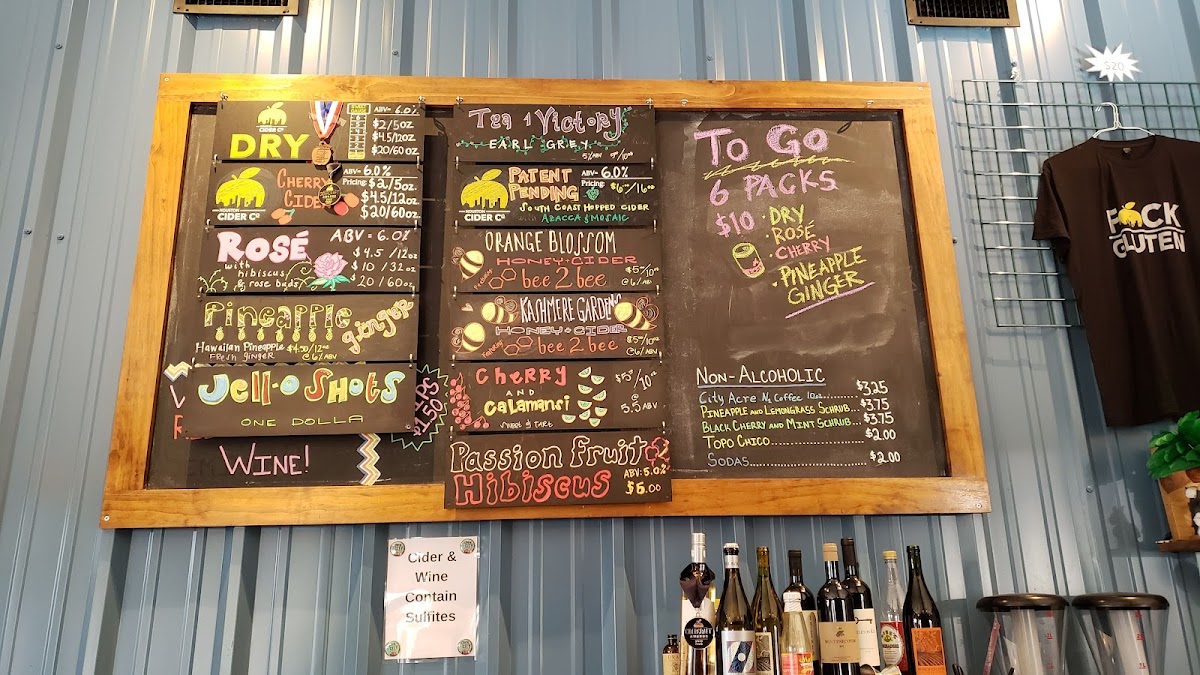 CIDER CO
DRY
ABV= 6.0%
$2/5oz
$4.5/12oz
$20/60oz
HOUSTON
CIDER CO
CHERRY
CIDER
ABV= 6.0%
Pricing: $2/5oz
$4.5/12oz
$20/60oz
ROSÉ
with
hibiscus
& rose buds
ABV = 6.0%
$4.5 / 12oz
$10 / 32oz
$20 / 60oz
Pineapple
ginger
Hawaiian Pineapple
Fresh Ginger
$4.50/12oz
@6% ABV
Jell-o Shots
ONE DOLLA
WINE!
Tea 4 Victory
EARL GREY
5% ABV
HOUSTON
CIDER CO
PATENT
PENDING
ABV= 6.0%
Pricing:
SOUTH COAST HOPPED CIDER
AZACCA & MOSAIC
ORANGE BLOSSOM
HONEY+CIDER
bee 2 bee
@6%ABV
KASHMERE GARDENS
HONEY+CIDER
bee 2 bee
@6%ABV
Cherry
AND
Calamansi
SWEET & TART
@
5.5 ABV
Passion Fruit
Hibiscus
ABV: 5.0%
$6.00
To Go
6 PACKS
$10
• DRY
• ROSÉ
• CHERRY
• PINEAPPLE
GINGER
NON-ALCOHOLIC
City Acre N2 Coffee 10oz........ $3.25
PINEAPPLE AND LEMONGRASS SCHRUB... $3.75
BLACK CHERRY AND MINT SCHRUB... $3.75
TOPO CHICO.................. $2.00
SODAS........................ $2.00
Cider &
Wine
Contain
Sulfites
$20
F CK
GLUTEN